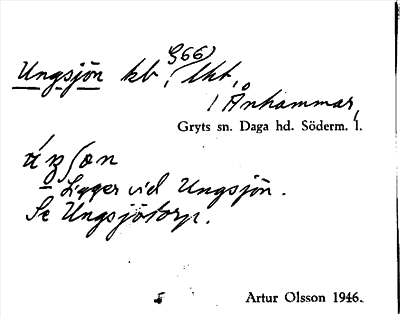 G66)
Ungsjön kb, lht,
/ Ånhammar,
Gryts sn. Daga hd. Söderm. l.
Ligger vid Ungsjön.
Se Ungsjötorp.
Artur Olsson 1946.